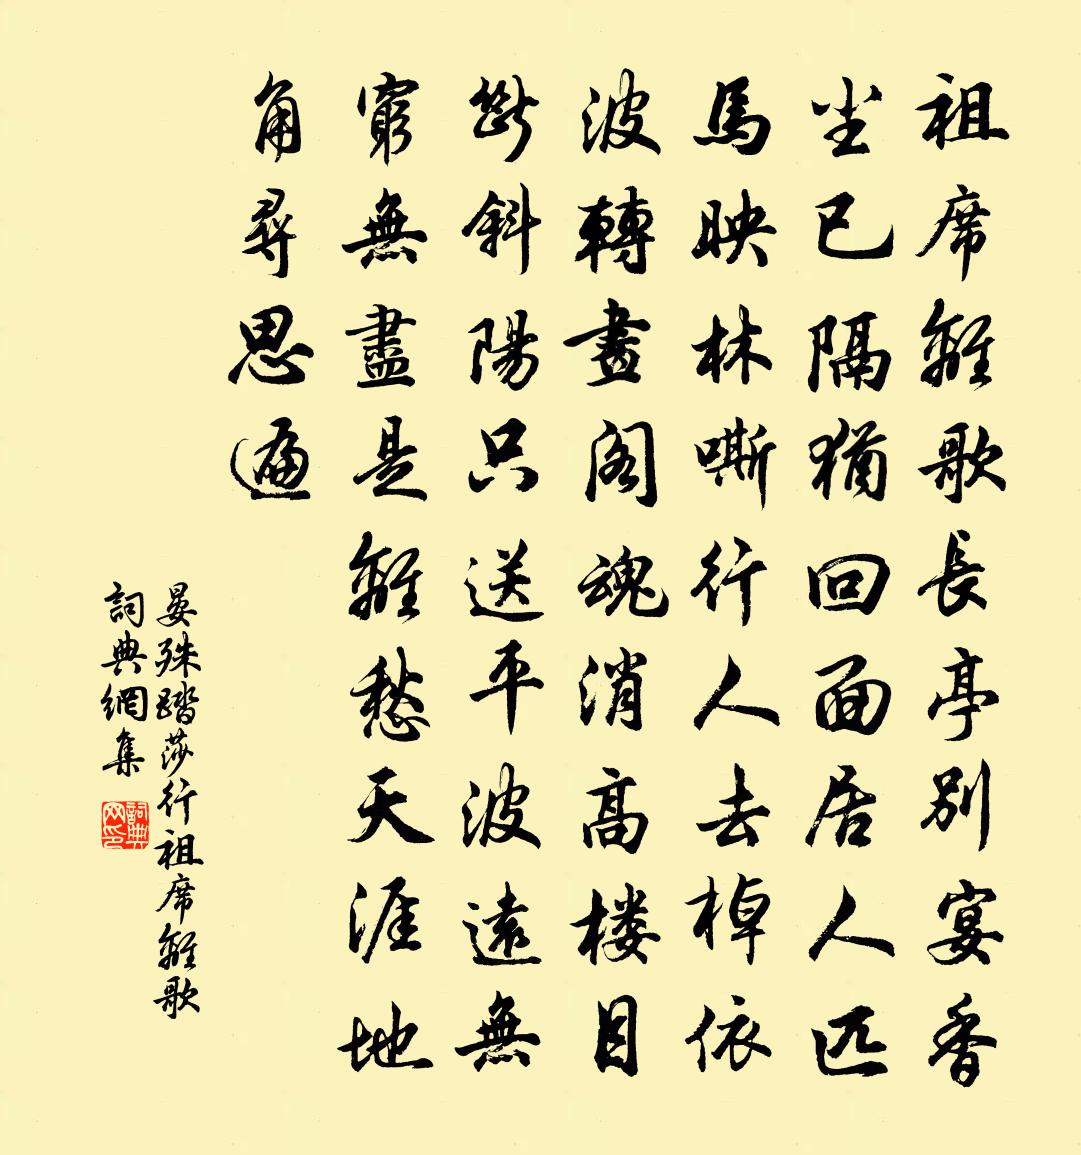 祖席離歌長亭別宴香
尘已隔猶回面居人匹
馬映林嘶行人去棹依
波轉畫閣魂消高楼目
斷斜陽只送平波遠無
窮無盡是離愁天涯地
角尋思遍
晏殊踏莎行祖席離歌
詞典網集
詞典网印